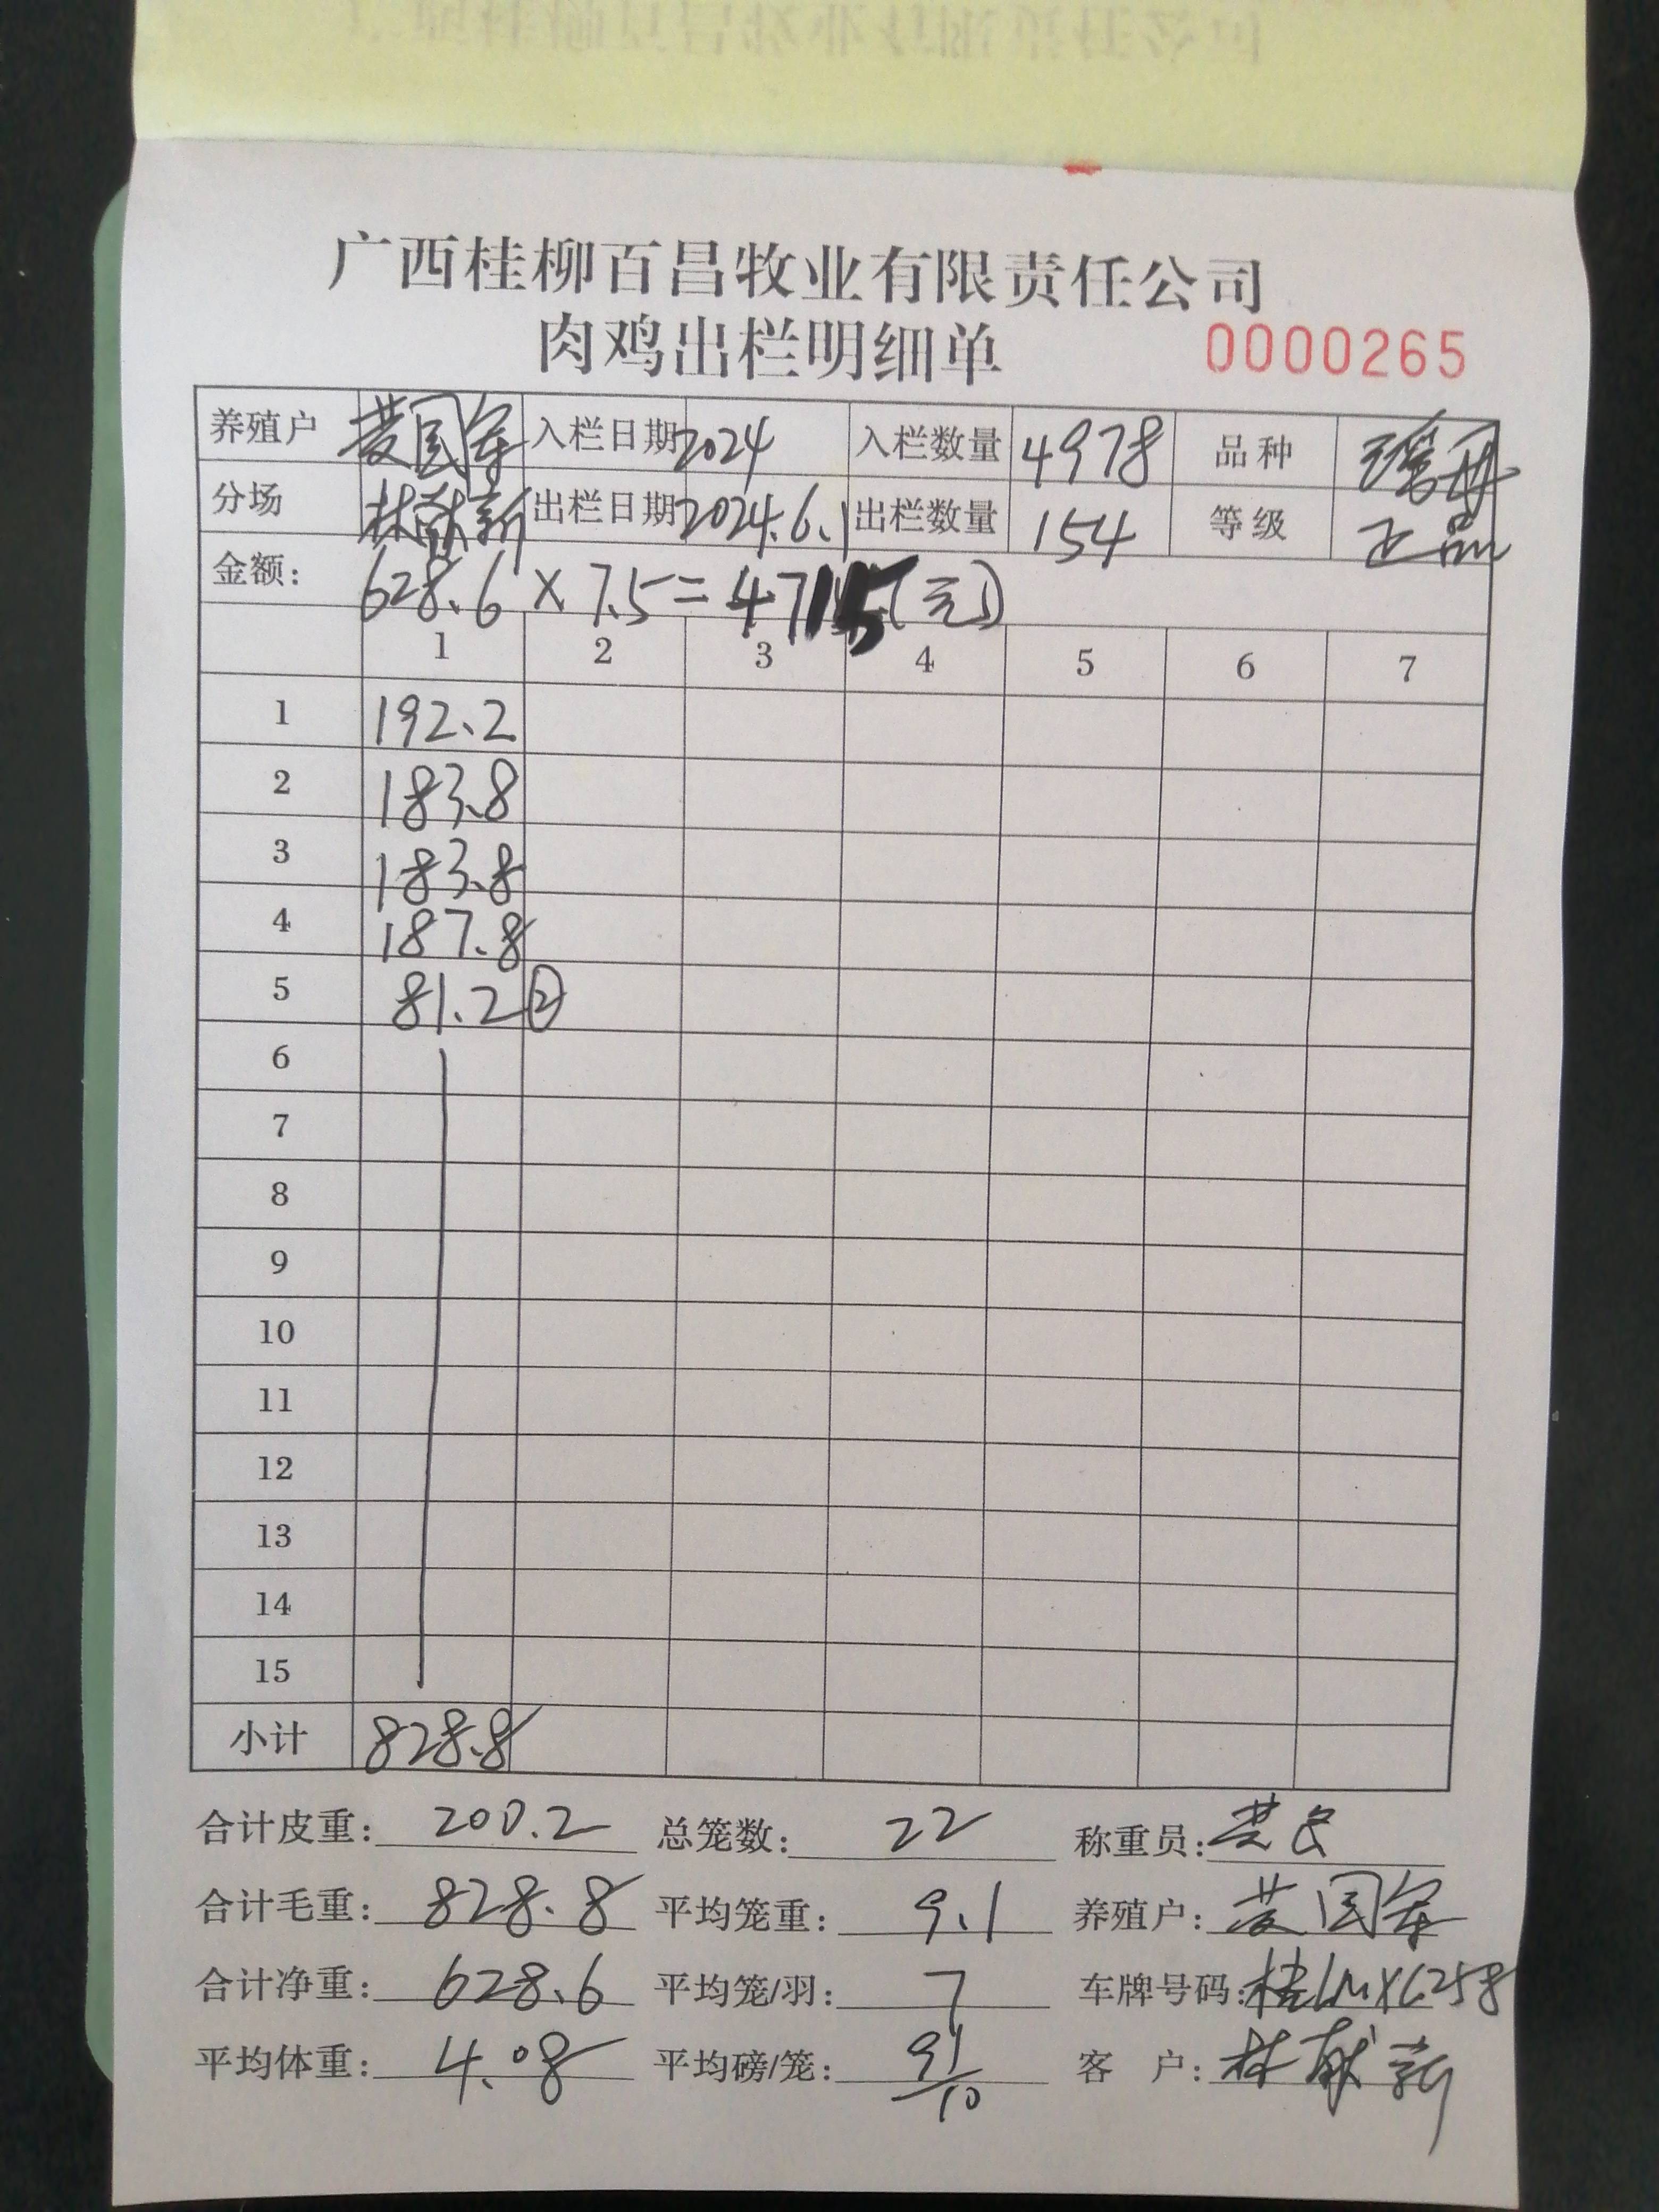 广西桂柳百昌牧业有限责任公司
肉鸡出栏明细单 0000265
养殖户 黄国军 入栏日期 2024 入栏数量 4978 品种 瑶鸡
分场 林献新 出栏日期 2024.6.1 出栏数量 154 等级 正品
金额: 628.6 × 7.5 = 4715 (元)
1 2 3 4 5 6 7
1 192.2
2 183.8
3 183.8
4 187.8
5 81.2 ②
6
7
8
9
10
11
12
13
14
15
小计 828.8
合计皮重: 200.2 总笼数: 22 称重员:
合计毛重: 828.8 平均笼重: 9.1 养殖户: 黄国军
合计净重: 628.6 平均笼/羽: 7 车牌号码:
平均体重: 4.08 平均磅/笼: 91/10 客 户: 林献新